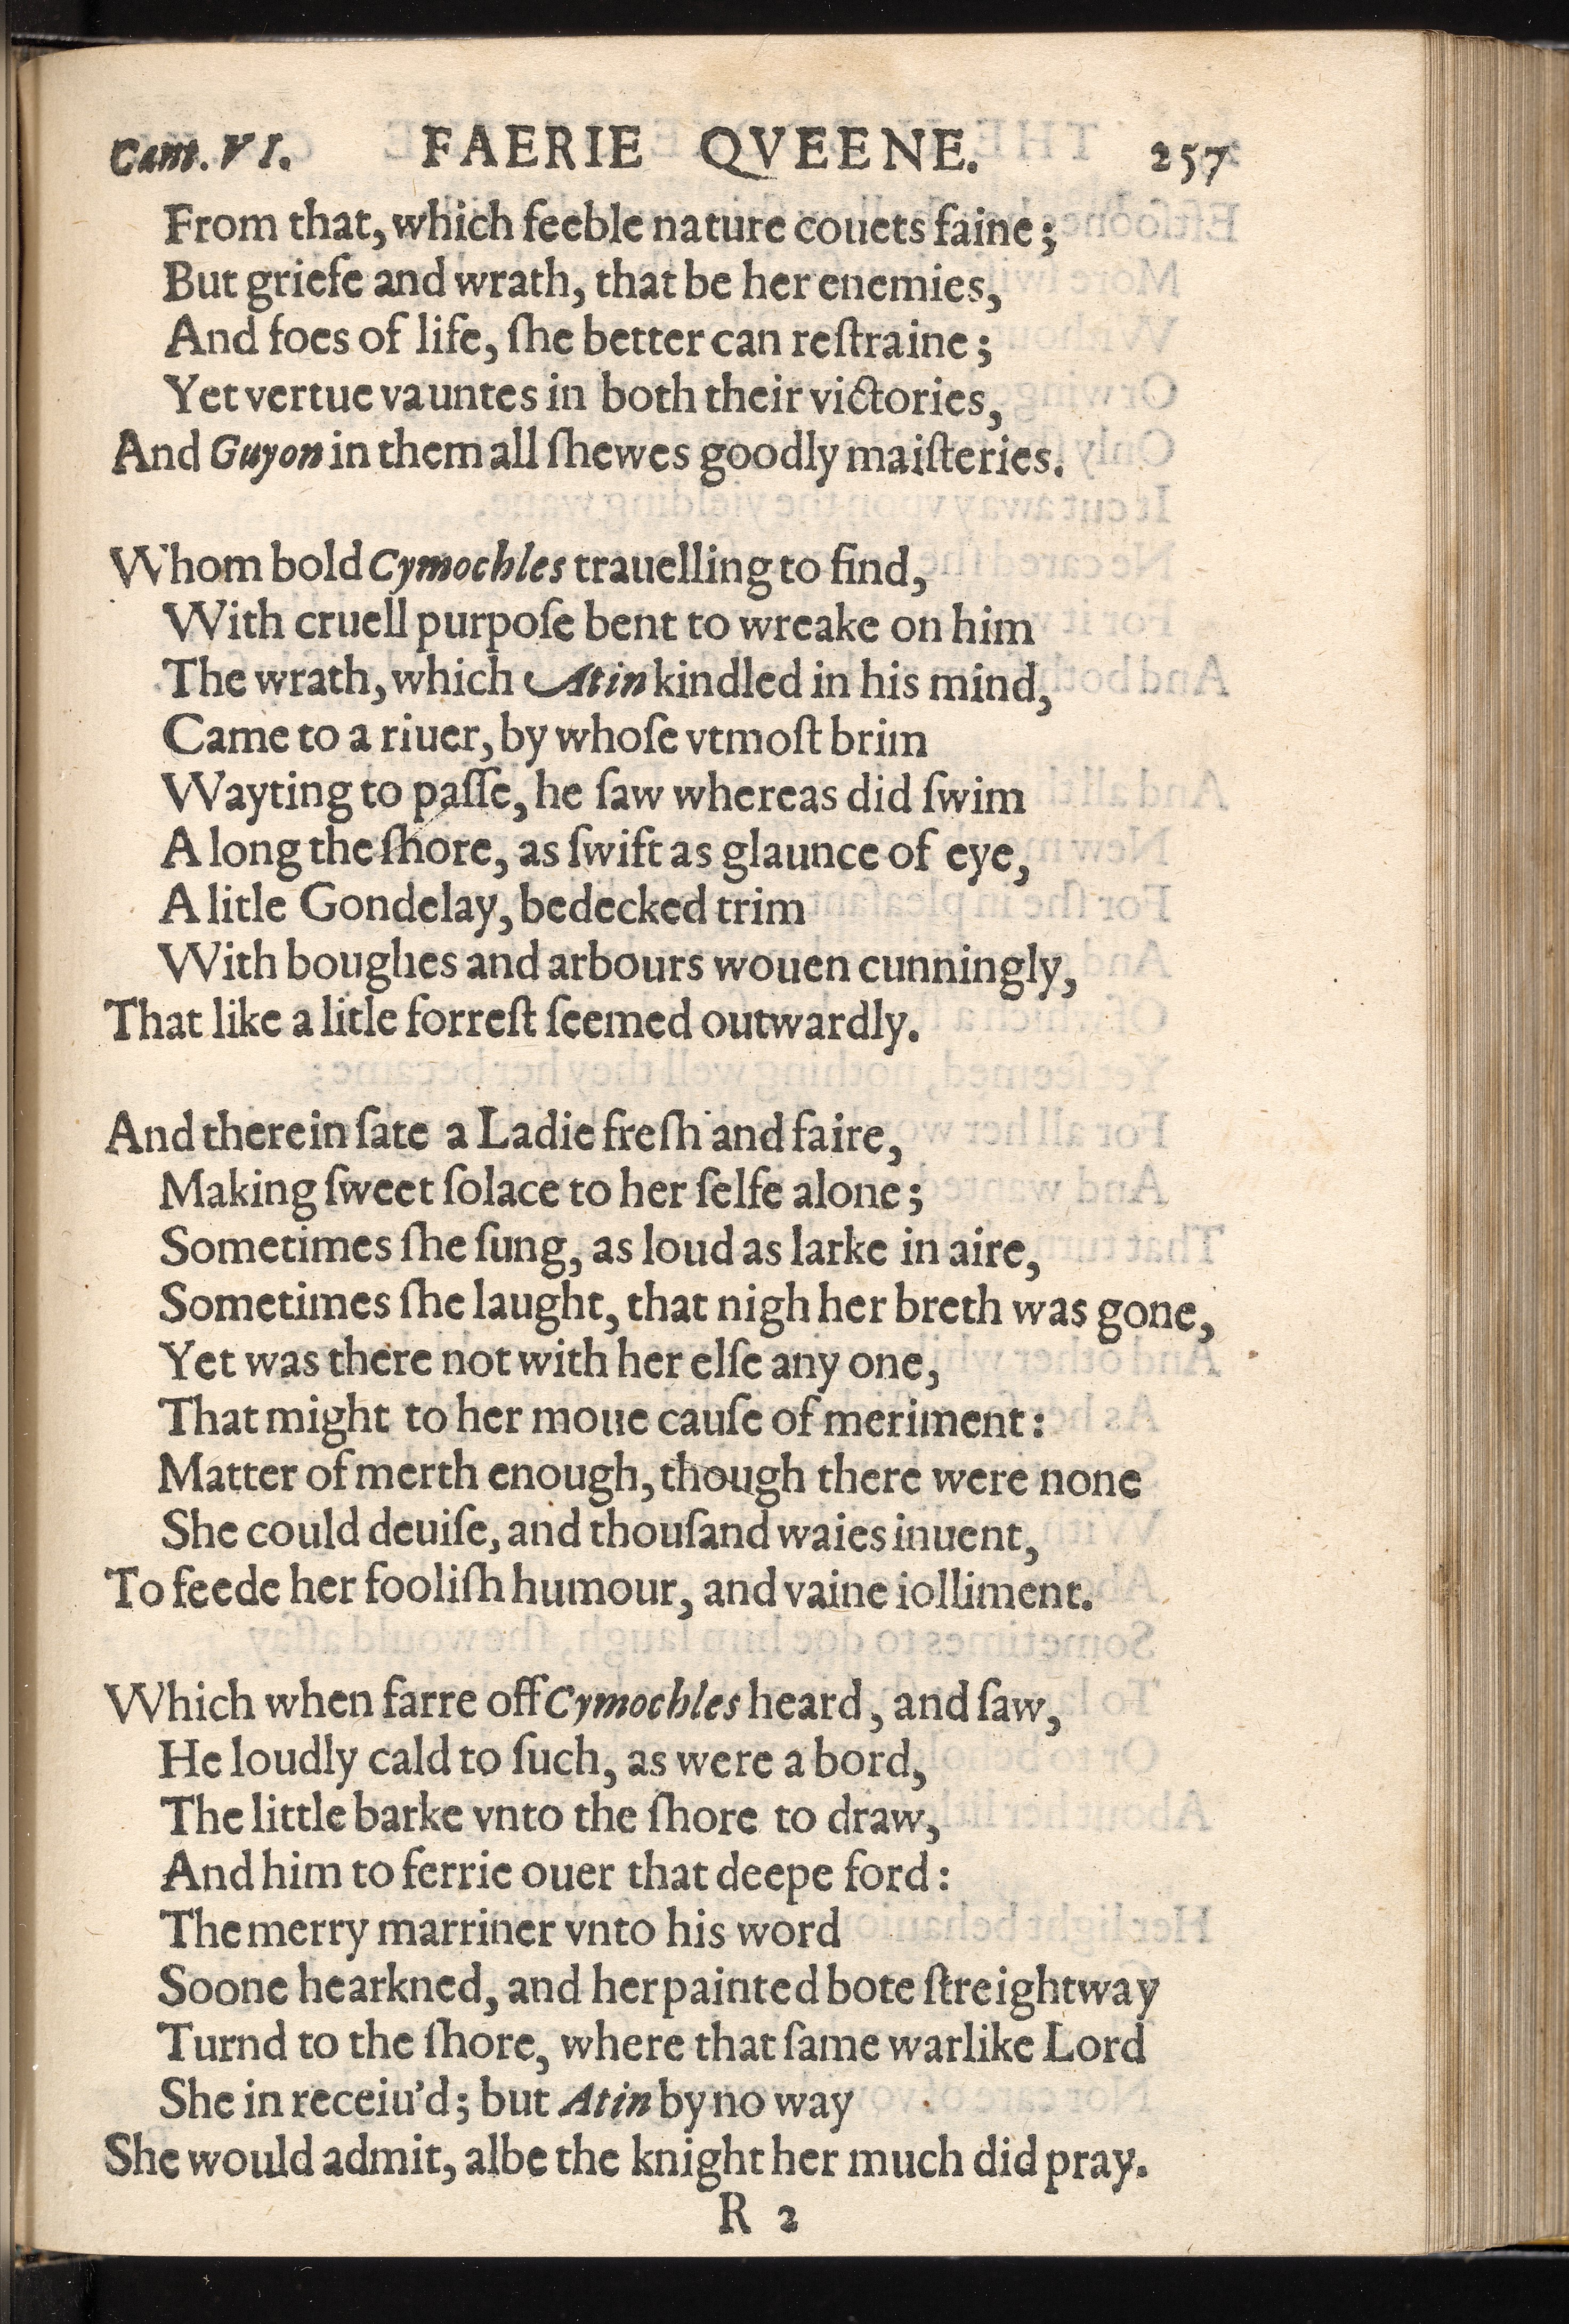 Cant. VI. FAERIE QVEENE. 257
From that, which feeble nature couets faine;
But griefe and wrath, that be her enemies,
And foes of life, ſhe better can reſtraine;
Yet vertue vauntes in both their victories,
And Guyon in them all ſhewes goodly maiſteries.
Whom bold Cymochles trauelling to find,
With cruell purpoſe bent to wreake on him
The wrath, which Atin kindled in his mind,
Came to a riuer, by whoſe vtmoſt brim
Wayting to paſſe, he ſaw whereas did ſwim
A long the ſhore, as ſwift as glaunce of eye,
A litle Gondelay, bedecked trim
With boughes and arbours wouen cunningly,
That like a litle forreſt ſeemed outwardly.
And therein ſate a Ladie freſh and faire,
Making ſweet ſolace to her ſelfe alone;
Sometimes ſhe ſung, as loud as larke in aire,
Sometimes ſhe laught, that nigh her breth was gone,
Yet was there not with her elſe any one,
That might to her moue cauſe of meriment:
Matter of merth enough, though there were none
She could deuiſe, and thouſand waies inuent,
To feede her fooliſh humour, and vaine iolliment.
Which when farre off Cymochles heard, and ſaw,
He loudly cald to ſuch, as were a bord,
The little barke vnto the ſhore to draw,
And him to ferrie ouer that deepe ford:
The merry marriner vnto his word
Soone hearkned, and her painted bote ſtreightway
Turnd to the ſhore, where that ſame warlike Lord
She in receiu'd; but Atin by no way
She would admit, albe the knight her much did pray.
R 2